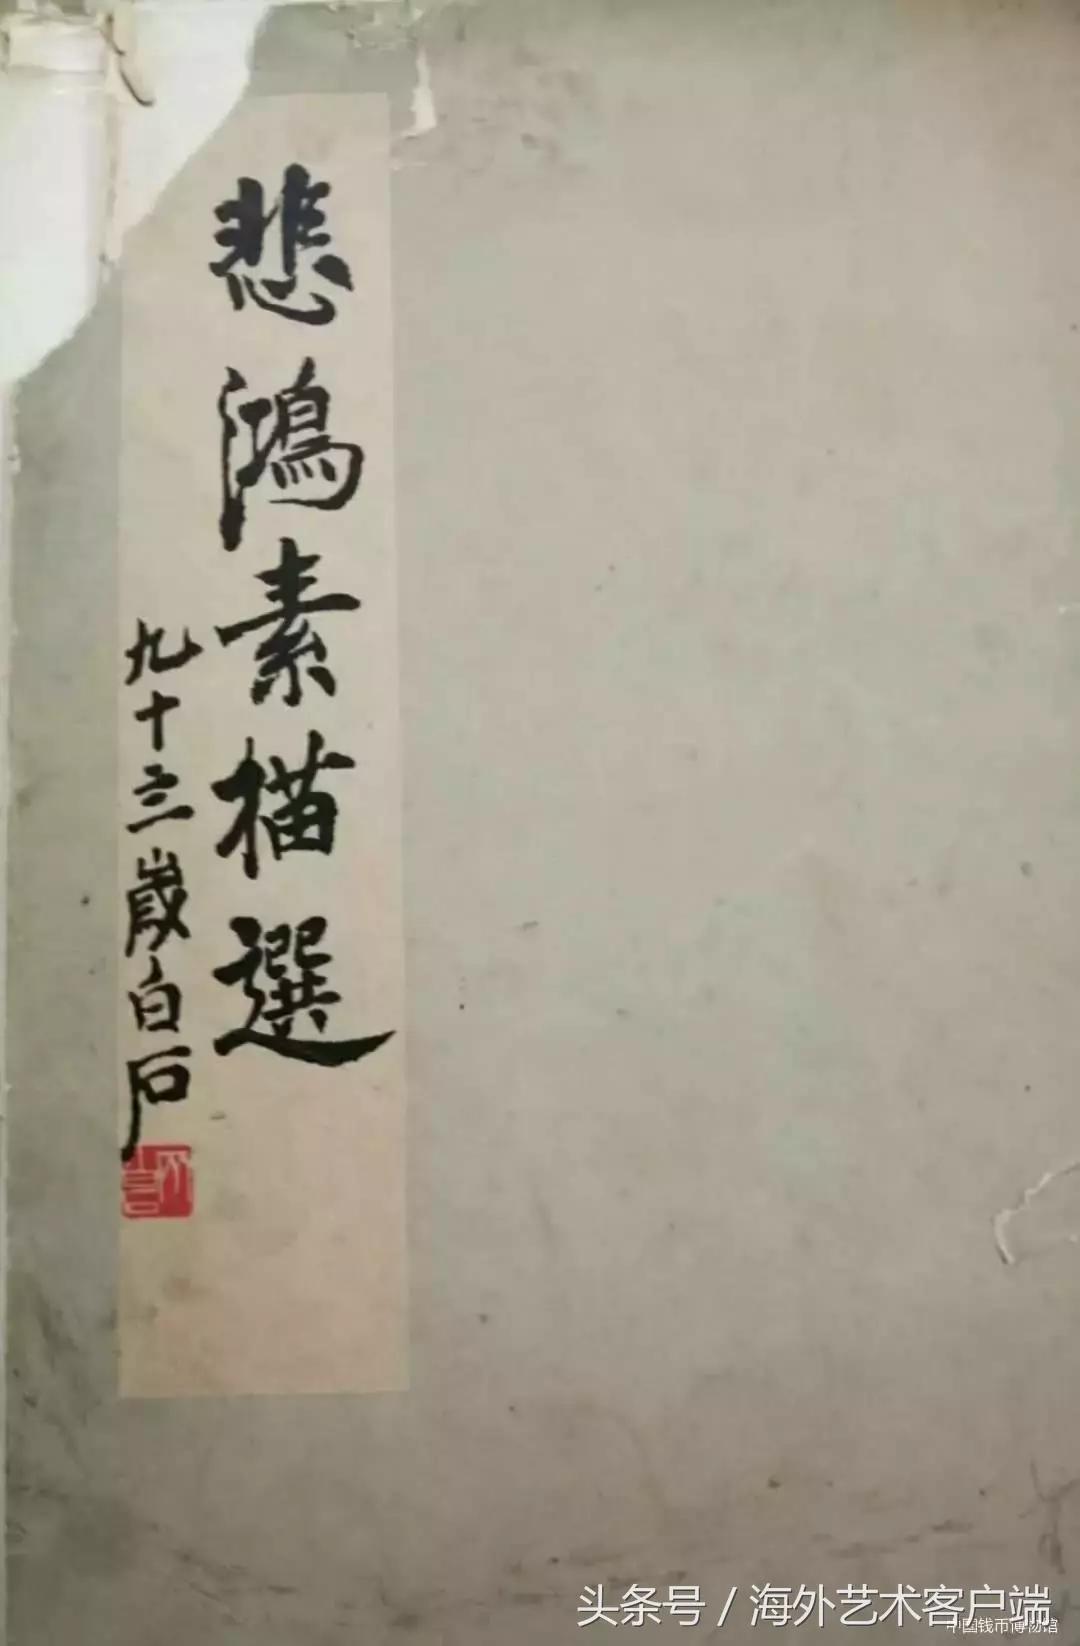 悲鴻素描選
九十三歲白石
头条号 / 海外艺术客户端
中国钱币博物馆